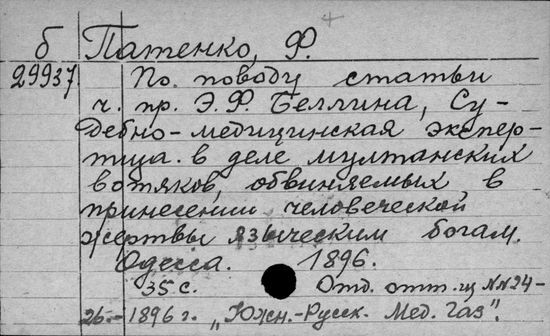 б Патенко, Ф.
29937 По поводу статьи
ч. пр. Э.Ф. Беллина, Су-
дебно-медицинская экспер-
тиза в деле мултанских
вотяков, обвиняемых в
принесении человеческой
жертвы языческим богам.
Одесса. 1896.
35 с. Отд. отт. из NN 24-
26 - 1896 г. „Южн.-Русск. Мед. Газ".